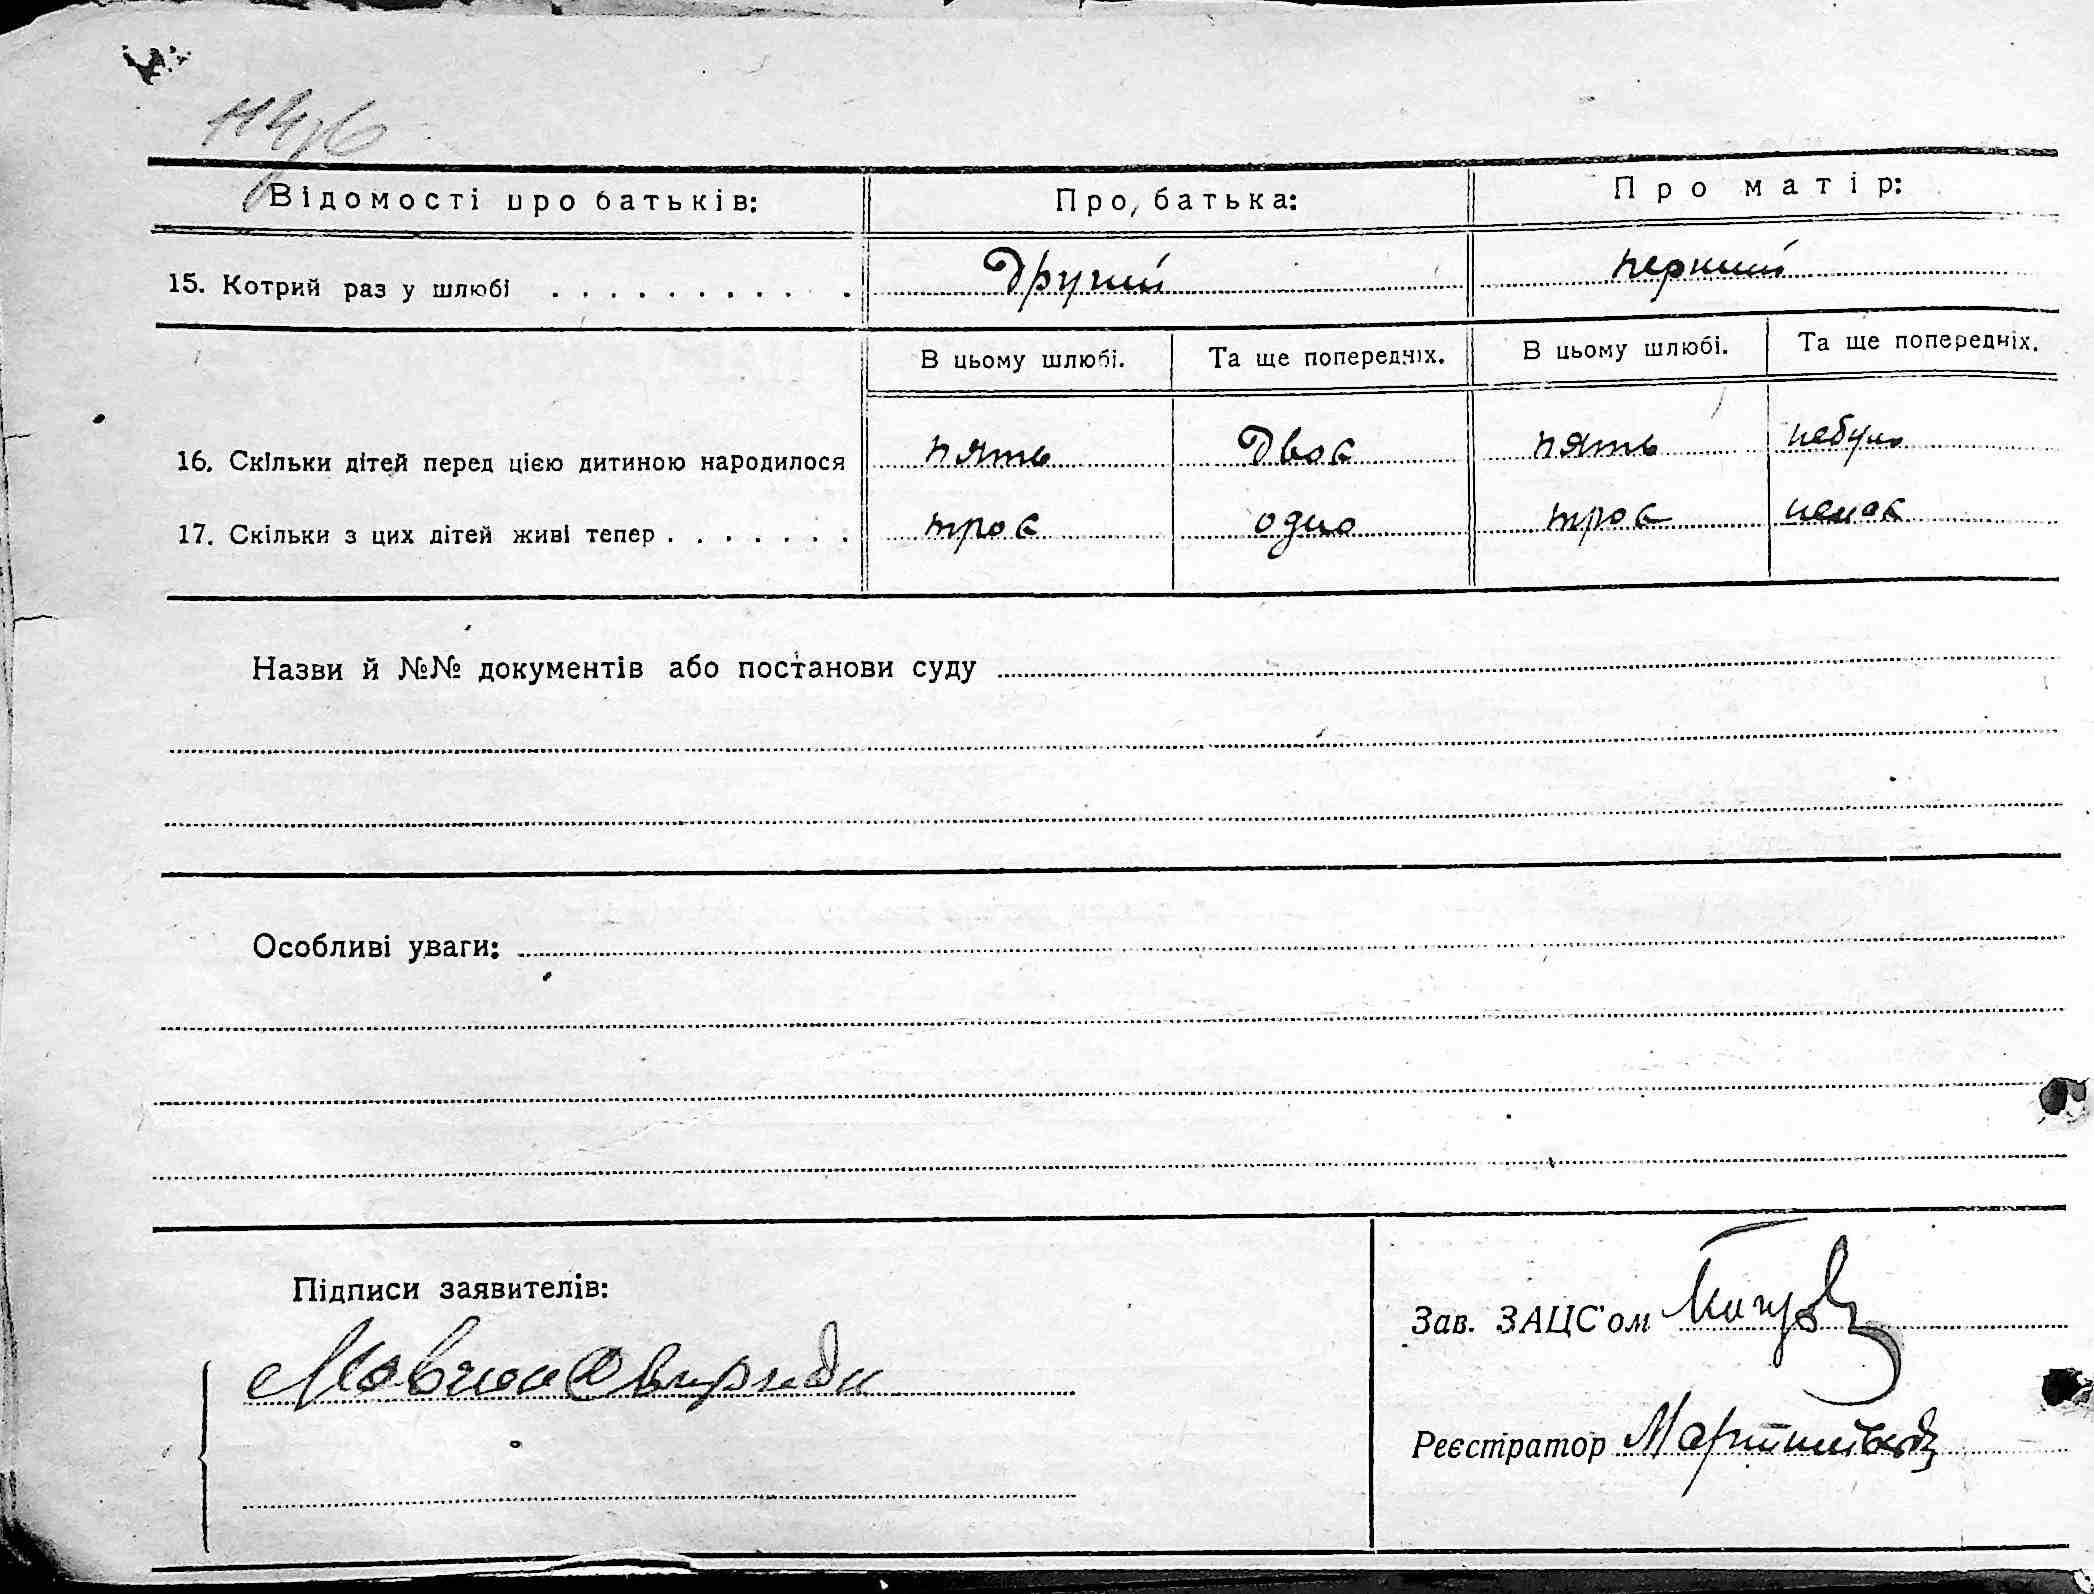 Відомості про батьків: Про батька: Про матір:
15. Котрий раз у шлюбі . . . . . . . . . . . другий перший
В цьому шлюбі. Та ще попередніх. В цьому шлюбі. Та ще попередніх.
16. Скільки дітей перед цією дитиною народилося пять двоє пять небуло
17. Скільки з цих дітей живі тепер . . . . . . . троє одно троє немає
Назви й №№ документів або постанови суду
Особливі уваги:
Підписи заявителів:
Зав. ЗАЦС'ом
Мовчан
Реєстратор